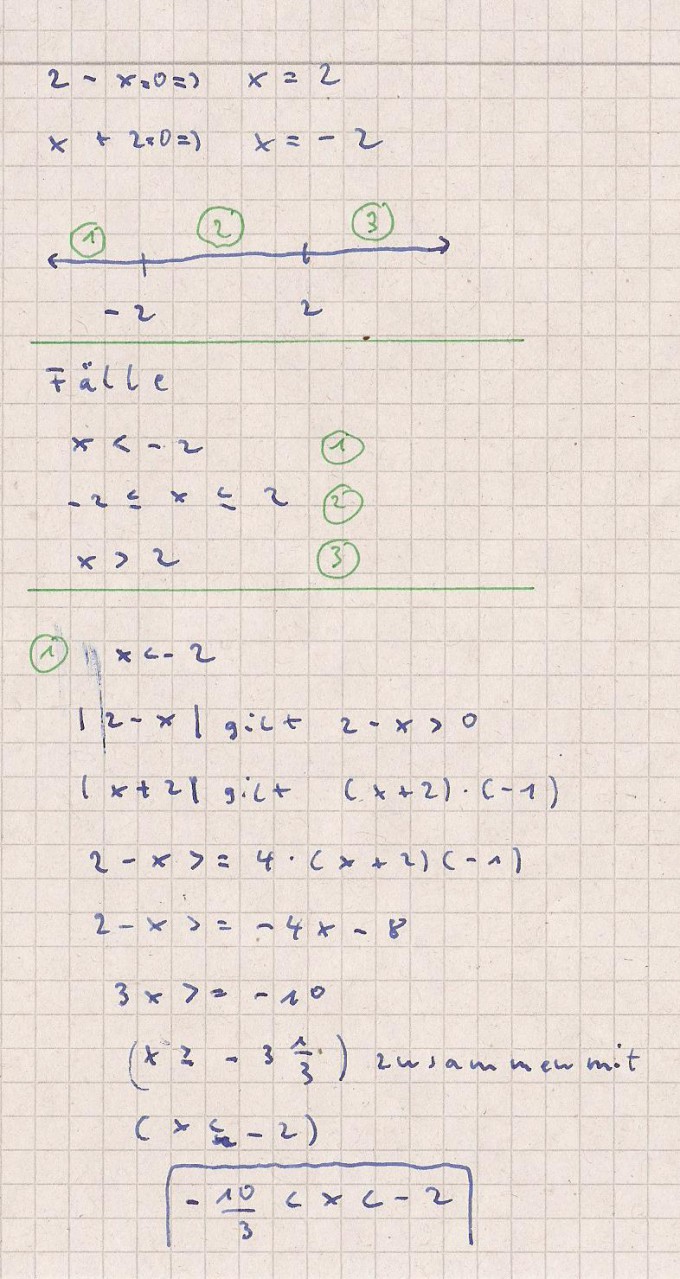 2 - x=0=> x = 2
x + 2=0=> x = - 2
1 2 3
- 2 2
Fälle
x < - 2 1
- 2 ≤ x ≤ 2 2
x > 2 3
1 x < - 2
|2 - x| gilt 2 - x > 0
|x + 2| gilt (x + 2) · (-1)
2 - x >= 4 · (x + 2) (-1)
2 - x >= - 4x - 8
3x >= - 10
(x ≥ - 3 1/3) zusammen mit
(x < - 2)
- 10/3 < x < - 2